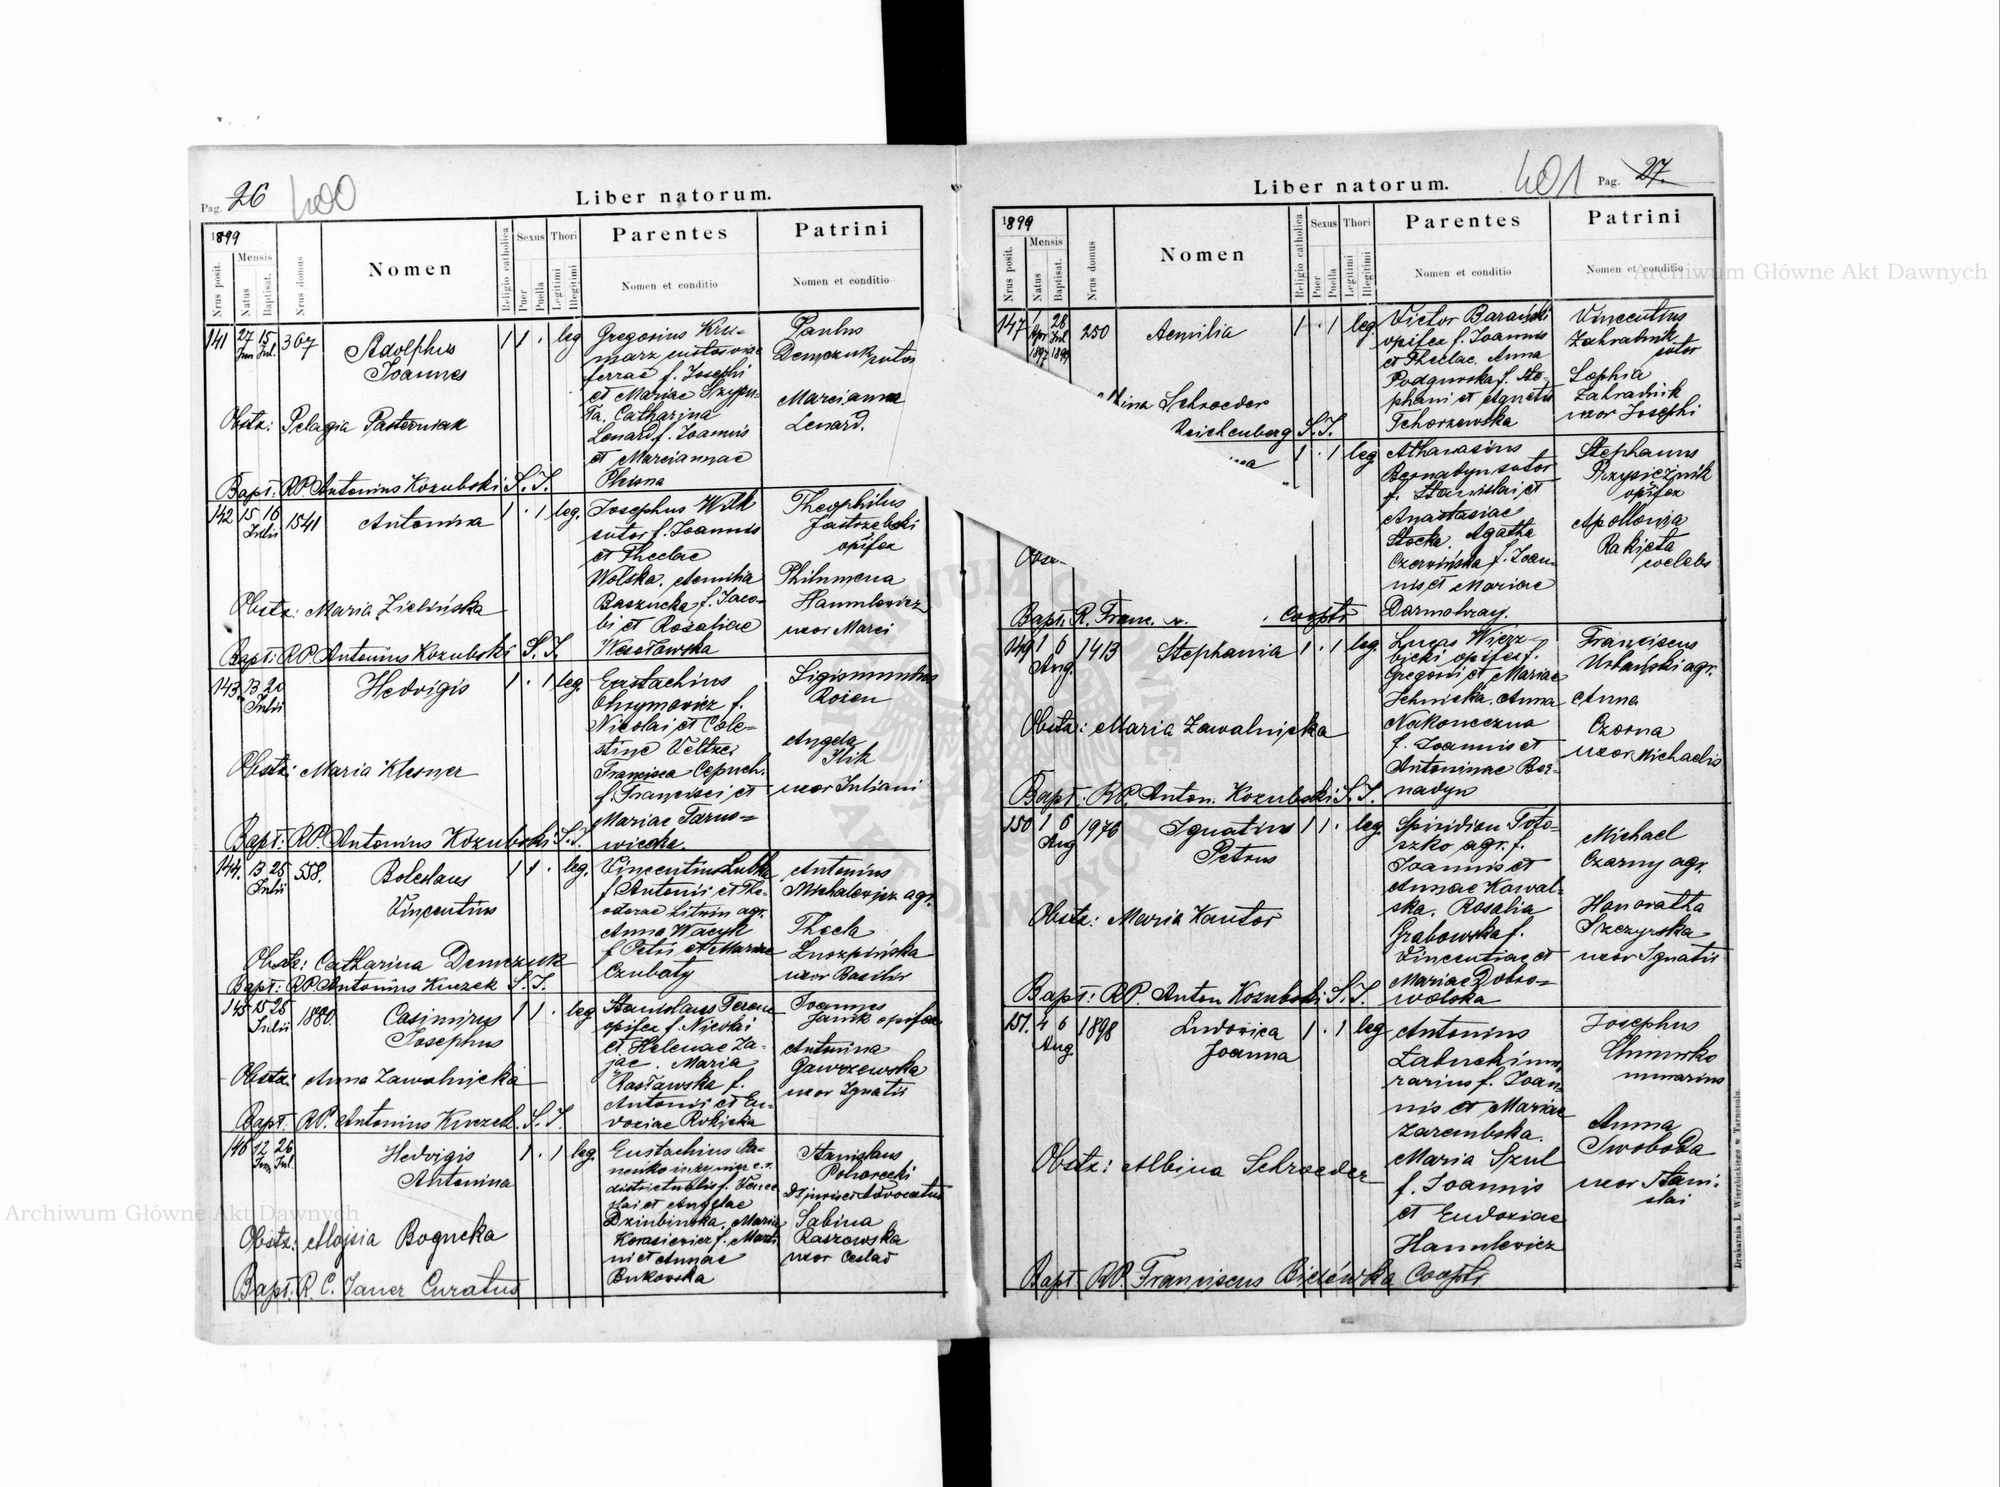 Pag. 26 400
Liber natorum.
1899
Nrus posit.
Mensis
Natus
Baptisat.
Nrus domus
Nomen
Religio catholica
Sexus
Puer
Puella
Thori
Legitimi
Illegitimi
Parentes
Nomen et conditio
Patrini
Nomen et conditio
141 27 15 367 Adolphus 1 1 . leg
Jun. Jul. Joannes
Obstz: Pelagia Pasterniak
Bapt: RP. Antonius Kozubski S. J.
Gregorius
ferrae f. Josephi
et Mariae
Catharina
Lenard f. Joannis
et Mariannae
Paulus
Demczuk sutor
Marcianna
Lenard.
142 15 16 1541 Antonina 1 . 1 leg.
Julii
Obstz: Maria Zielińska
Bapt: RP. Antonius Kozubski S. J.
Josephus Wilk
sutor f. Joannis
et Theclae
Wolska. Aemilia
Baszucka f. Jaco-
bi et Rosaliae
Wasławska
Theophilus
Jastrzebski
opifex
Philumena
Hanulewicz
uxor Marci
143 13 20 Hedvigis 1 . 1 leg.
Julii
Obstz: Maria Klesner
Bapt: RP. Antonius Kozubski S. J.
Eustachius
Chrymowicz f.
Nicolai et Cöle-
stine
Francisca
f. Francisci et
Mariae Tarno-
wiecka.
Sigismundus
Rozen
Angela
Ilik
uxor Juliani
144. 13 25 558. Boleslaus 1 1 . leg.
Julii Vincentius
Obstz: Catharina Demczuk
Bapt: RP Antonius Kuczek S. J.
Vincentius
f. Antonii et The-
odorae Litwin agr.
Anna Wacyk
f Petri et Mariae
Czubaty
Antonius
Michalewicz agr.
Thecla
uxor Basilii
145 15 25 1880. Casimirus 1 1 . leg
Julii Josephus
Obstz: Anna Zawalnicka
Bapt. RP. Antonius Kuczek. S. J.
Stanislaus
opifex f. Nicolai
et Helenae Za-
jac. Maria
Rasławska f.
Antonii et Eu-
doxiae Rokicka
Joannes
Janik opifex
Antonina
Gawrzewska
uxor Ignatii
146 12 26 Hedvigis 1 . 1 leg.
Jun. Jul. Antonina
Obstz: Alojsia Rogucka
Bapt: R. C. Janer Curatus
Eustachius
districtualis f.
et Angelae
Dziubińska. Maria
ni et Annae
Bukovska
Stanislaus
Advocatus
Sabina
Raszowska
uxor
401 Pag. 27.
Liber natorum.
1899
Nrus posit.
Mensis
Natus
Baptisat.
Nrus domus
Nomen
Religio catholica
Sexus
Puer
Puella
Thori
Legitimi
Illegitimi
Parentes
Nomen et conditio
Patrini
Nomen et conditio
147 1 28 250 Aemilia 1 . 1 leg.
Apr Jul
1897 1899
Schroeder
Reichenberg S. J.
Victor Barański
opifex f. Joannis
et Theclae. Anna
Podgurska f. Ste-
phani et Agnetis
Tchorzewska
Vincentius
Zahradnik
sutor
Sophia
Zahradnik
uxor Josephi
1 . 1 leg
Bapt. R. Franc. Coop
Athanasius
Bernadyn sutor
f. Stanislai et
Anastasiae
Stocka. Agatha
Czerwińska f. Joan-
nis et Mariae
Darmohray.
Stephanus
opifex
Apollonia
Rakieta
coelebs
149 1 6 1413 Stephania 1 . 1 leg.
Aug.
Obstz: Maria Zawalnicka
Bapt. RP. Anton. Kozubski S. J.
Lucas Wierz-
bicki opifex f.
Gregorii et Mariae
Anna
Nakoneczna
f. Joannis et
Antoninae Ber-
nadyn
Franciscus
Urbański agr.
Anna
Czorna
uxor Michaelis
150 1 6 1976 Ignatius 1 1 . leg.
Aug Petrus
Obstz: Maria Kantor
Bapt: RP. Anton Kozubski S. J.
Spiridion Toto-
szko agr. f.
Joannis et
Annae Kowal-
ska. Rosalia
Grabowska f.
Vincentiae et
Mariae Dobro-
wolska
Michael
Czarny agr.
Honoratha
Szczyrska
uxor Ignatii
151. 4 6 1898 Ludovica 1 . 1 leg
Aug. Joanna
Obstz: Albina Schroeder
Bapt. RP. Franciscus Bielówka Coop
Antonius
f. Joan-
nis et Mariae
Zarembska.
Maria Szul
f. Joannis
et Eudoxiae
Hanulewicz
Josephus
Anna
Swoboda
uxor Stani-
slai
Drukarnia L. Wierzbickiego w Tarnopolu.
Archiwum Główne Akt Dawnych
Archiwum Główne Akt Dawnych